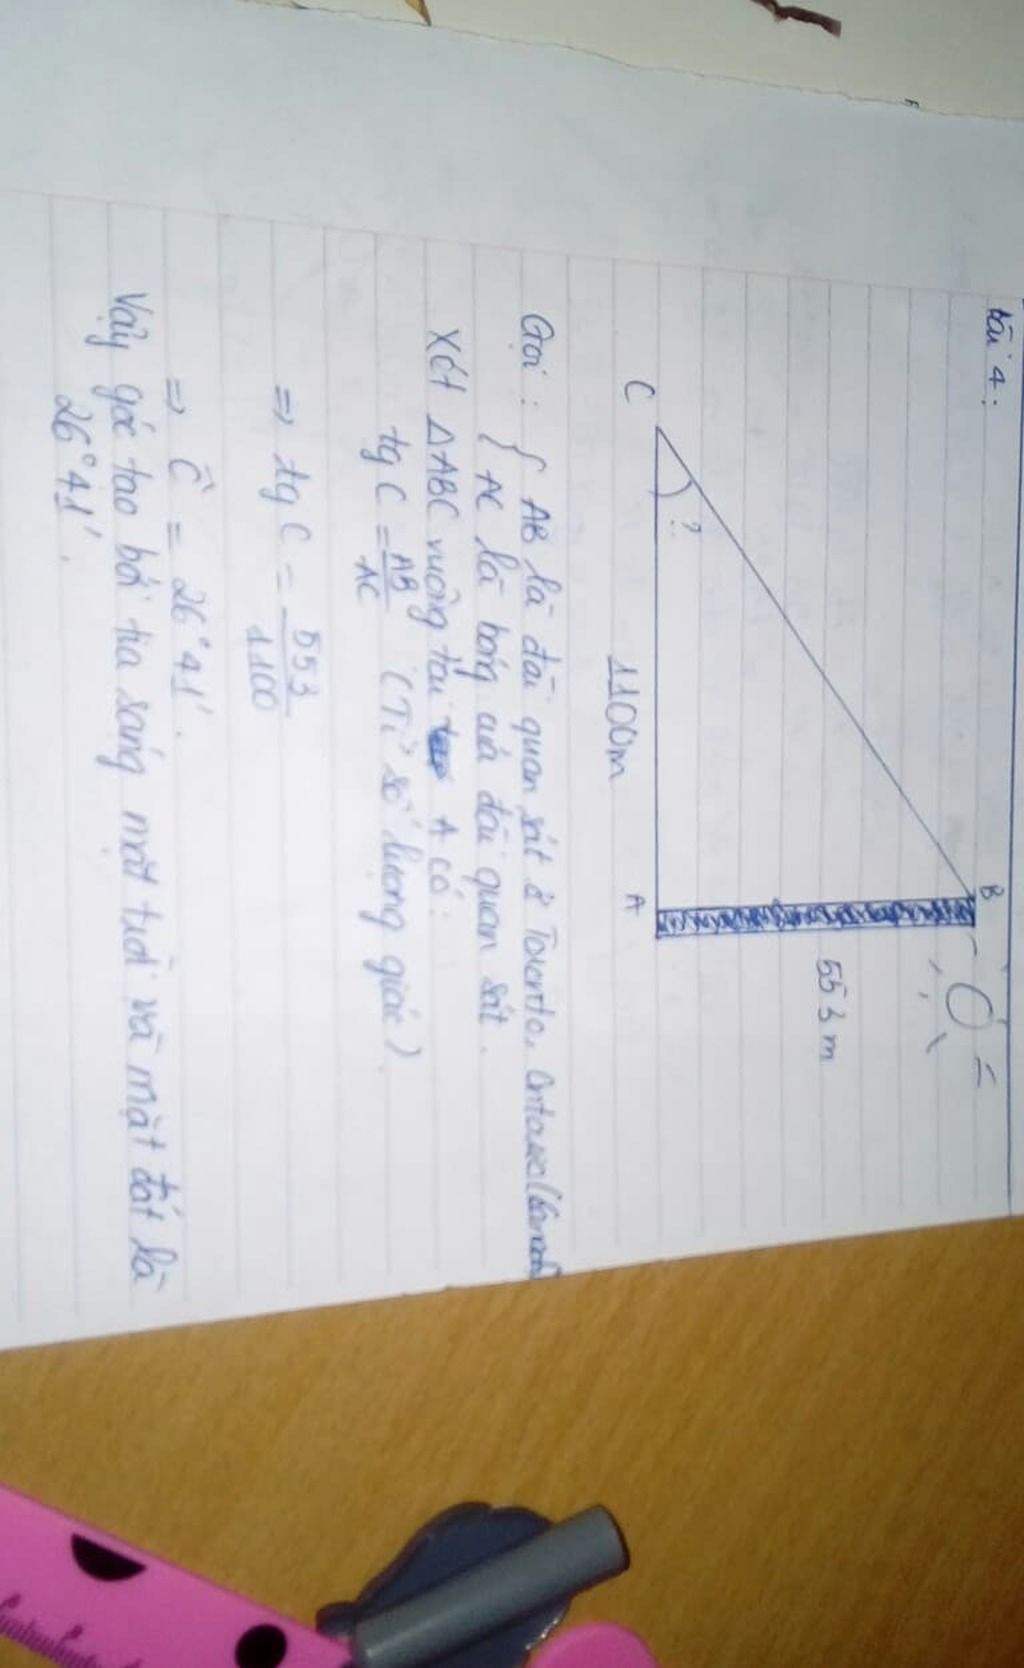 bài 4:
B
553m
C
?
1100m
A
Gọi : { AB là đài quan sát ở Toronto, Ontario (Canada)
AC là bóng của đài quan sát.
Xét ΔABC vuông tại A có:
tg C = AB/AC (Tỉ số lượng giác)
=> tg C = 553/1100
=> Ĉ = 26°41'.
Vậy góc tạo bởi tia sáng mặt trời và mặt đất là
26°41'.